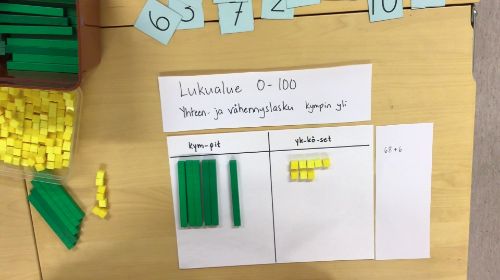 6
5
7
2
10
Lukualue 0-100
Yhteen- ja vähennyslasku kympin yli
kym-pit
yk-kö-set
68+6